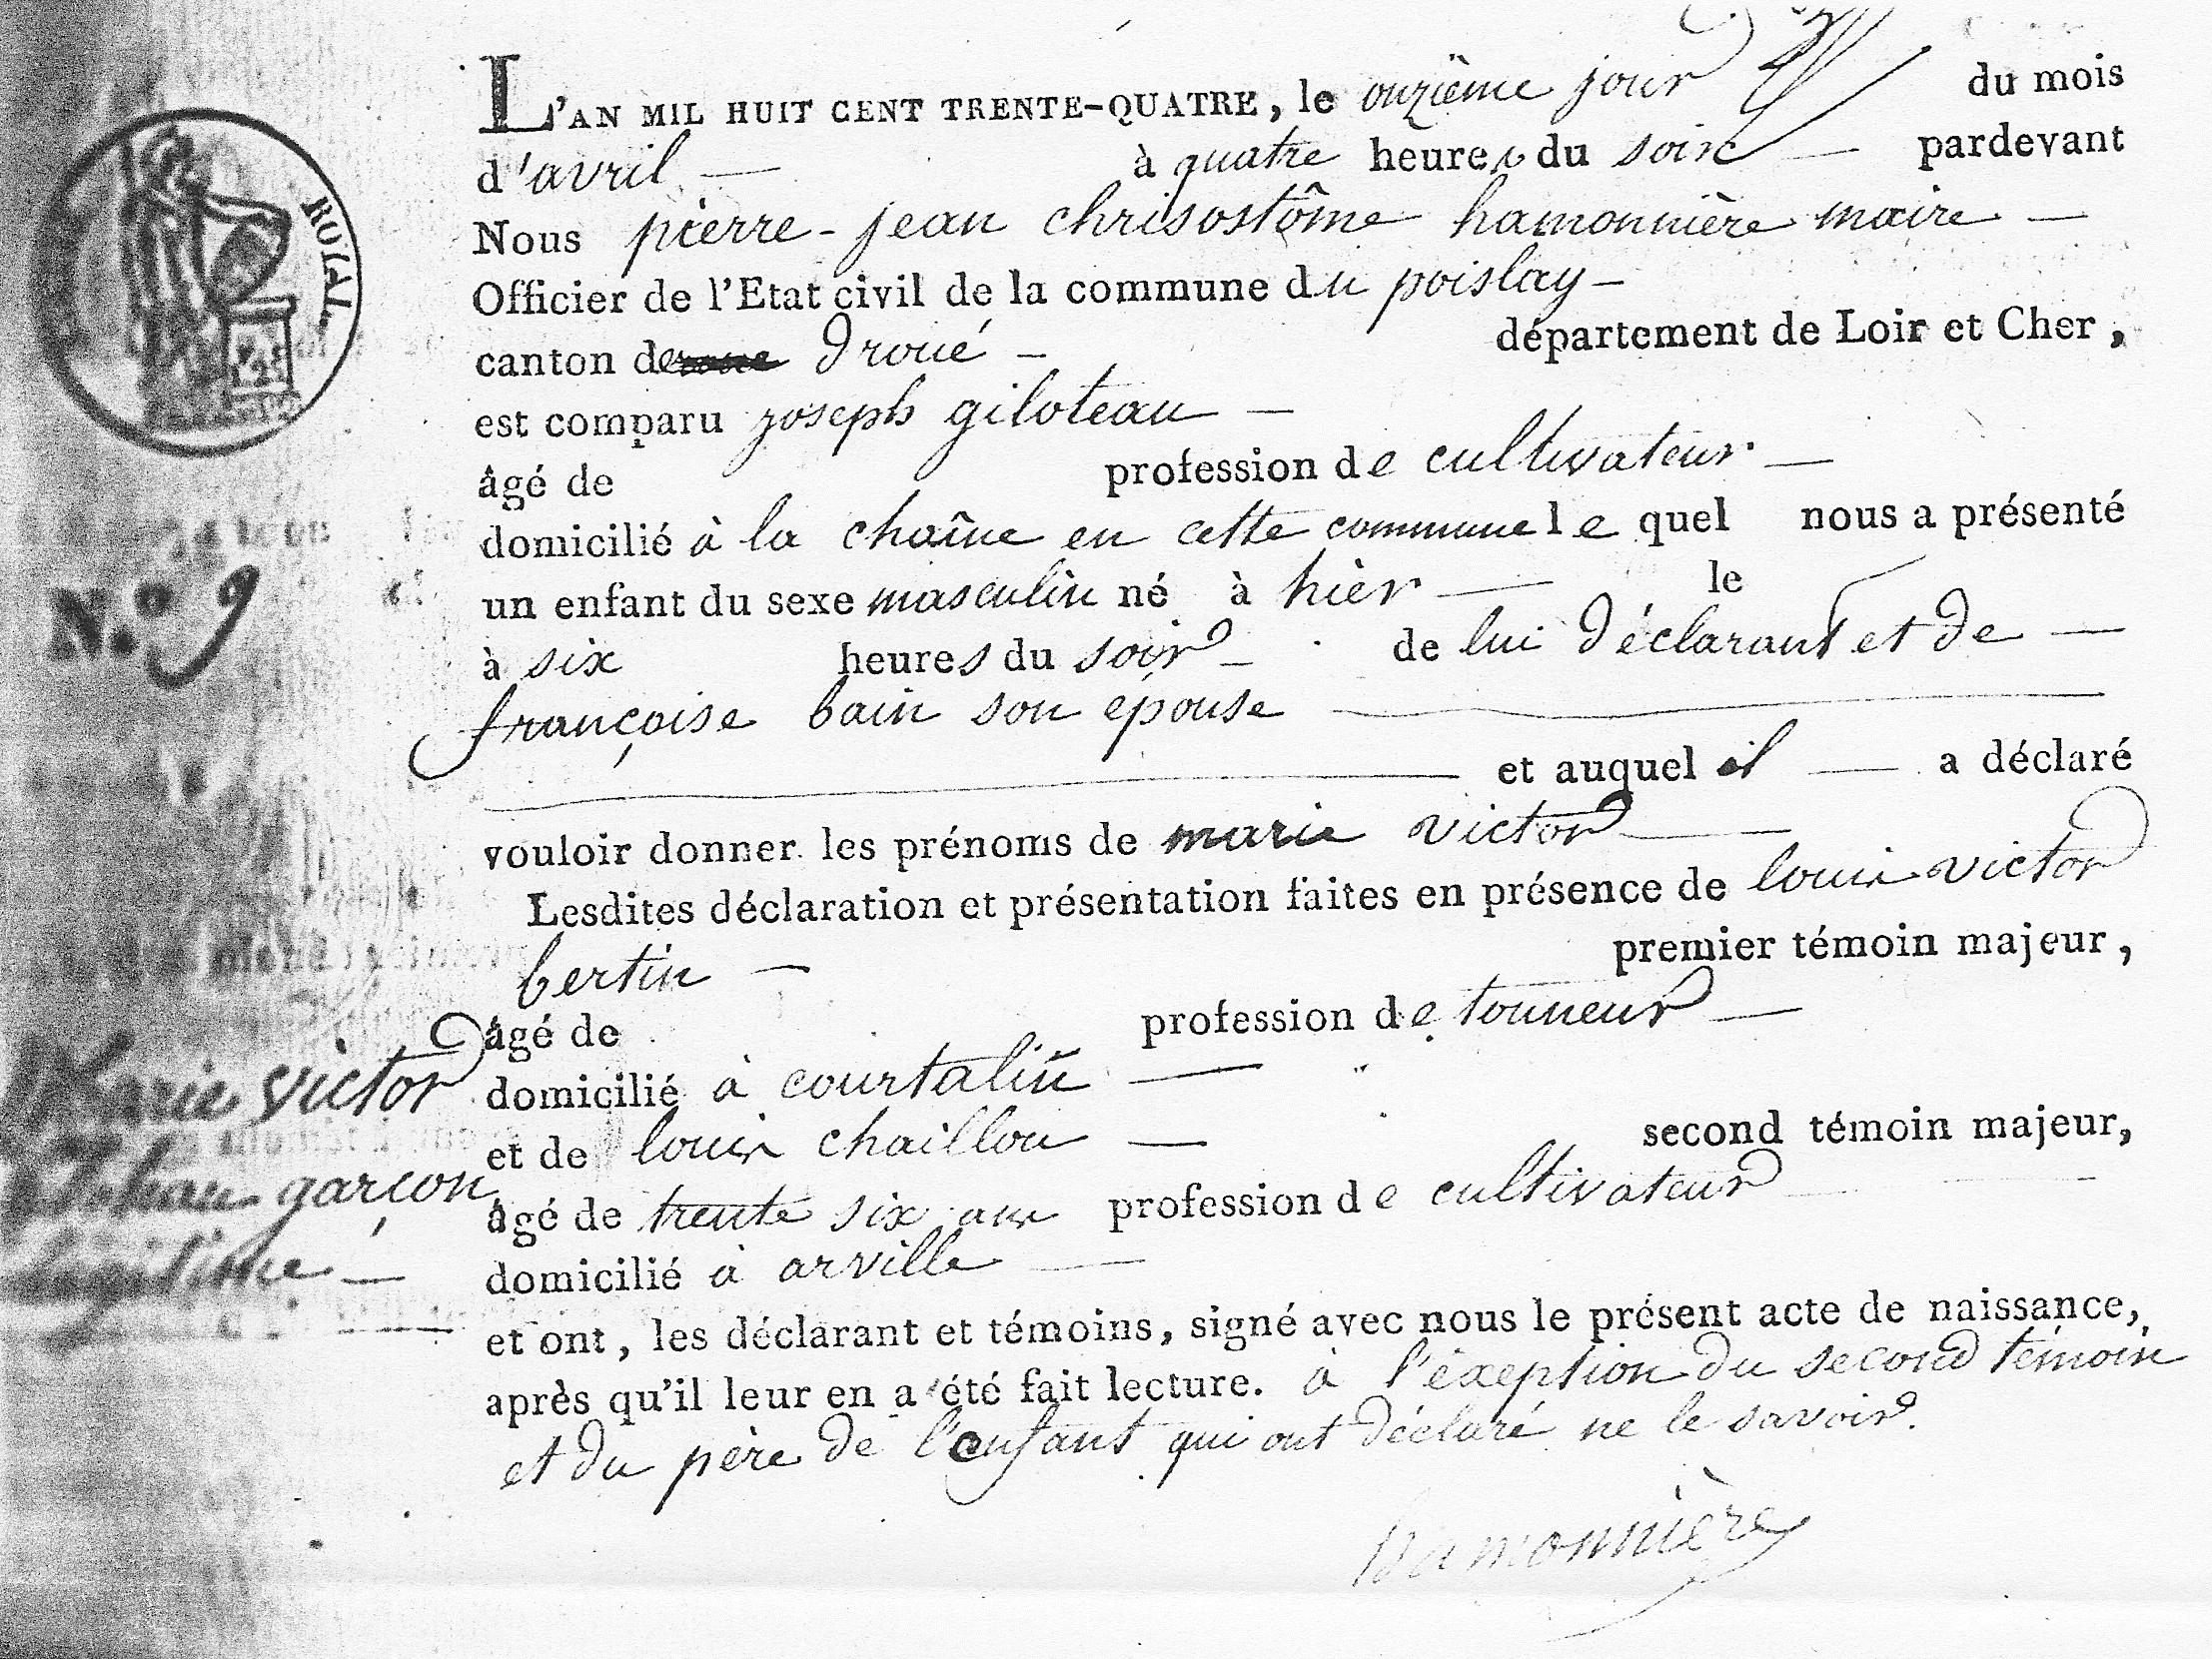 L'AN MIL HUIT CENT TRENTE-QUATRE, le onzième jour du mois
d'avril — à quatre heures du soir — pardevant
Nous pierre-jean chrisostôme hamonnière maire —
Officier de l'Etat civil de la commune du poislay —
canton de droué — département de Loir et Cher,
est comparu joseph giloteau —
âgé de profession de cultivateur. —
domicilié à la chaîne en cette commune le quel nous a présenté
un enfant du sexe masculin né à hièr — le
à six heures du soir — de lui déclarant et de —
françoise bain son épouse —
— et auquel il — a déclaré
vouloir donner les prénoms de marie victor —
Lesdites déclaration et présentation faites en présence de louis victor
bertin — premier témoin majeur,
âgé de profession de tonneur —
domicilié à courtalin —
et de louis chaillou — second témoin majeur,
âgé de trente six ans profession de cultivateur
domicilié à arville —
et ont, les déclarant et témoins, signé avec nous le présent acte de naissance,
après qu'il leur en a été fait lecture. à l'éxeption du second témoin
et du père de l'enfant qui ont déclaré ne le savoir.
hamonnière
ROYAL
N.º 9
Marie victor
garçon
légitime —